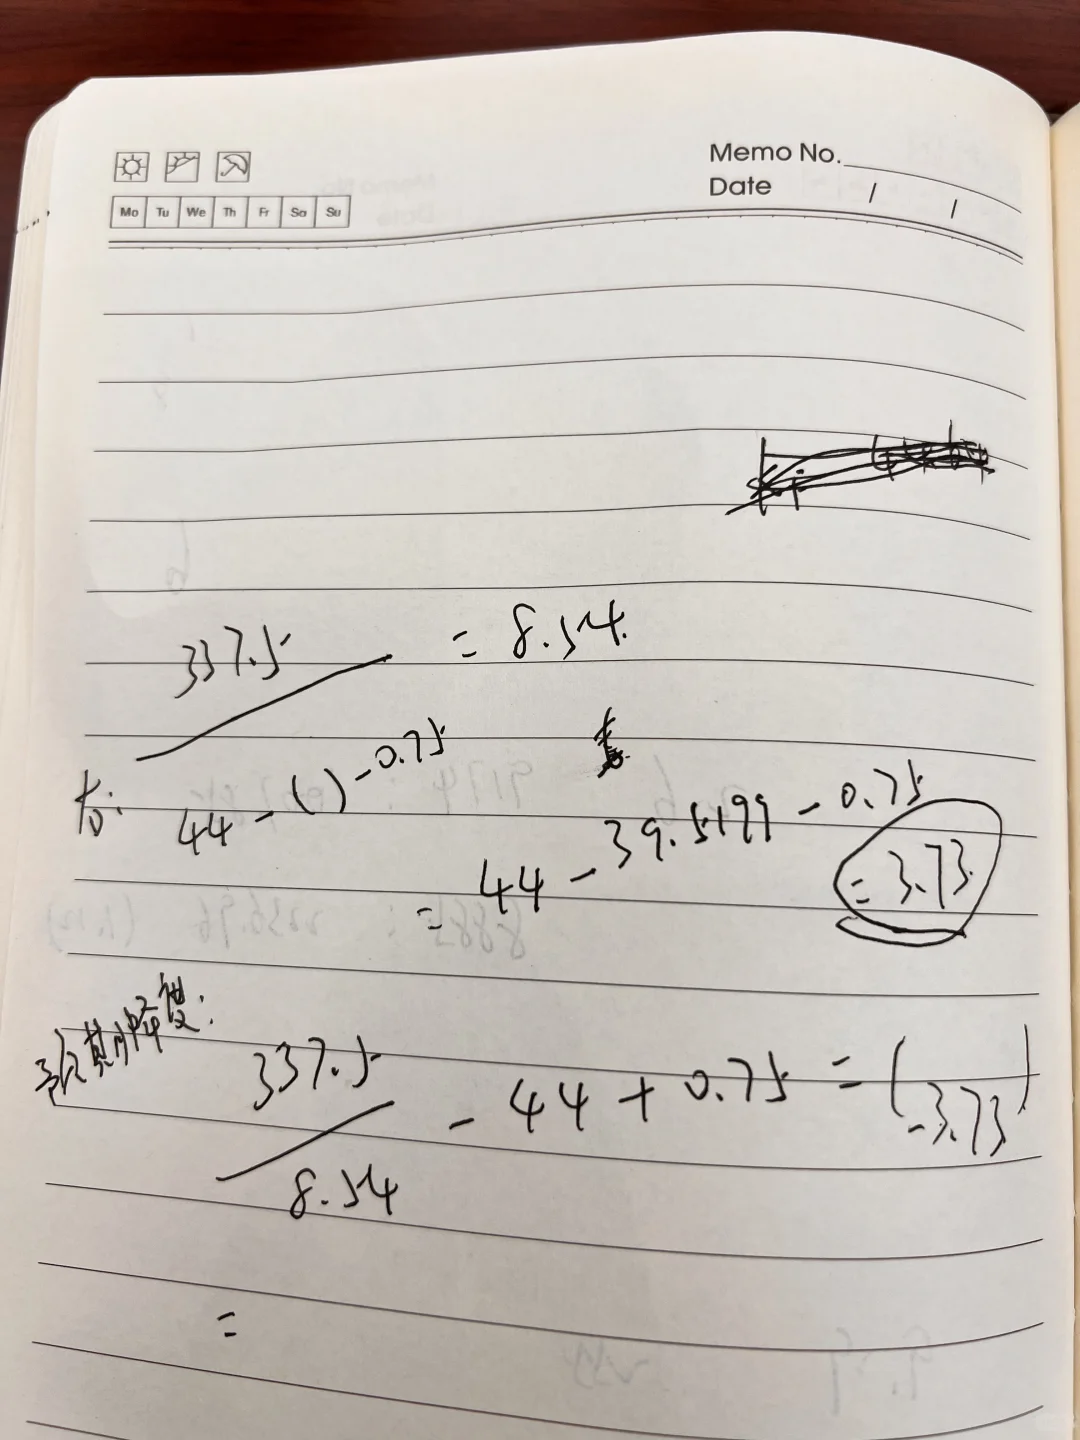 Memo No.
Date / /
Mo Tu We Th Fr Sa Su
337.5 = 8.54
44 - ( ) - 0.75
= 44 - 39.5199 - 0.75
= 3.73
337.5 - 44 + 0.75 = ( -3.73 )
8.54
=